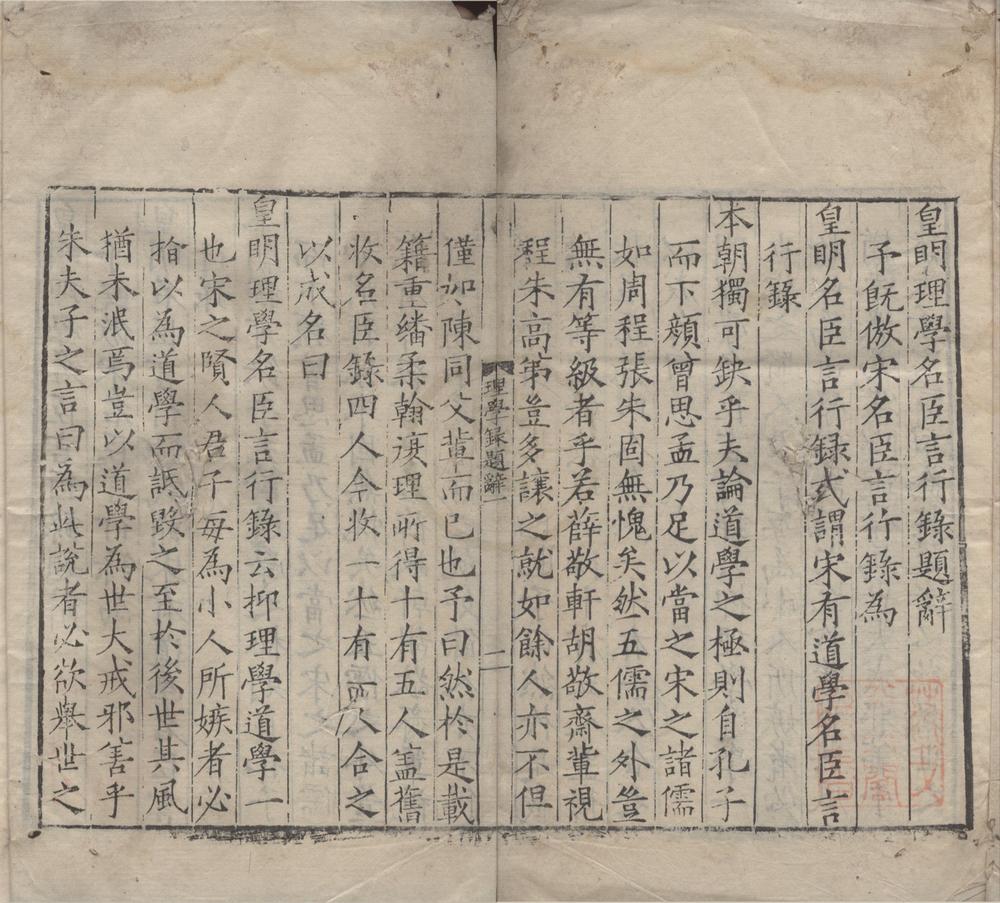 皇明理學名臣言行錄題辭
予旣倣宋名臣言行錄為
皇明名臣言行録式謂宋有道學名臣言
行錄
本朝獨可缺乎夫論道學之極則自孔子
而下顔曾思孟乃足以當之宋之諸儒
如周程張朱固無愧矣然五儒之外豈
無有等級者乎若薛敬軒胡敬齋軰視
程朱高第豈多讓之就如餘人亦不但
理學録題辭
二
僅如陳同父軰而已也予曰然於是載
籍重繙柔翰復理所得十有五人盖舊
收名臣錄四人今收一十有一人合之
以成名曰
皇明理學名臣言行錄云抑理學道學一
也宋之賢人君子每為小人所嫉者必
指以為道學而詆毀之至於後世其風
猶未泯焉豈以道學為世大戒邪善乎
朱夫子之言曰為此說者必欲舉世之